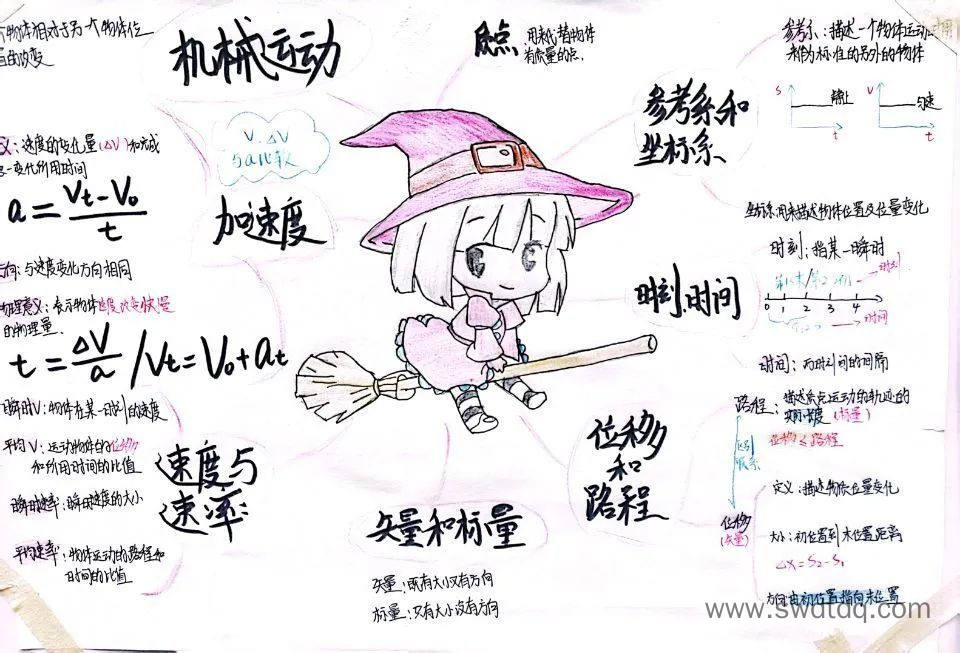 个物体相对于另一个物体位
置的改变
机械运动
质点
用来代替物体
有质量的点.
参考系:描述一个物体运动时用
来作为标准的另外的物体
S
静止
t
V
匀速
t
参考系和
坐标系
坐标系:用来描述物体位置及位置变化
义:速度的变化量(ΔV)和完成
这一变化所用时间
V.ΔV
与a比较
a=(Vt-V0)/t
加速度
方向:与速度变化方向相同
物理意义:表示物体速度改变快慢
的物理量.
t=ΔV/a / Vt=V0+at
时刻.时间
时刻:指某一瞬时
第1s末/第2s初
时刻
0 1 2 3 4
时间
时间:两时刻间的间隔
位移
和
路程
路程:描述质点运动的轨迹的
实际长度(标量)
位移≤路程
区别
联系
位移
(矢量)
定义:描述物质位置变化
大小:初位置到末位置距离
Δx=S2-S1
方向由初位置指向末位置
瞬时V:物体在某一时刻的速度
平均V:运动物体的位移
和所用时间的比值
瞬时速率:瞬时速度的大小
平均速率:物体运动的路程和
时间的比值
速度与
速率
矢量和标量
矢量:既有大小又有方向
标量:只有大小没有方向
www.swdtdq.com